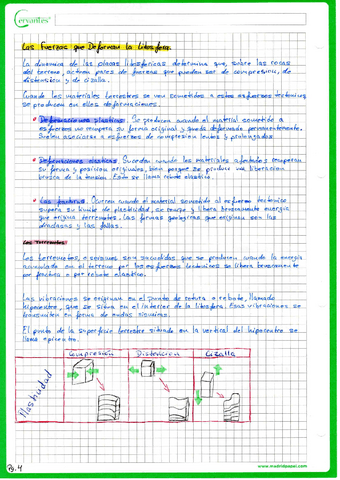 Cervantes
Las Fuerzas que Deforman la Litosfera.
La dinamica de las placas litosfericas determina que, sobre las rocas
del terreno, actuen pares de fuerzas que pueden ser de compresion, de
distension y de cizalla.
Cuando los materiales terrestres se ven sometidos a estos esfuerzos tectonicos
se producen en ellos deformaciones.
Deformaciones plasticas: Se producen cuando el material sometido a
esfuerzos no recupera su forma original y queda deformado permanentemente.
Suelen asociarse a esfuerzos de compresion lentos y prolongados.
Deformaciones elasticas: Suceden cuando los materiales afectados recuperan
su forma y posicion originales, bien porque se produce una liberacion
brusca de la tension. Esto se llama rebote elastico.
Las fracturas: Ocurren cuando el material sometido al esfuerzo tectonico
supera su limite de plasticidad, se rompe y libera bruscamente energia
que origina terremotos. Las formas geologicas que originan son las
diaclasas y las fallas.
Los terremotos
Los terremotos, o seismos son sacudidas que se producen cuando la energia
acumulada en el terreno por los esfuerzos tectonicos se libera bruscamente
por fractura o por rebote elastico.
Las vibraciones se originan en el punto de rotura o rebote, llamado
hipocentro, que se situa en el interior de la litosfera. Esas vibraciones se
transmiten en forma de ondas sismicas.
El punto de la superficie terrestre situado en la vertical del hipocentro se
llama epicentro.
Compresión Distension Cizalla
Pg. 4
www.madridpapel.com